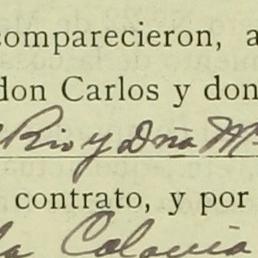 comparecieron, a
don Carlos y don
Rio y Dña Mª
contrato, y por
la Colonia